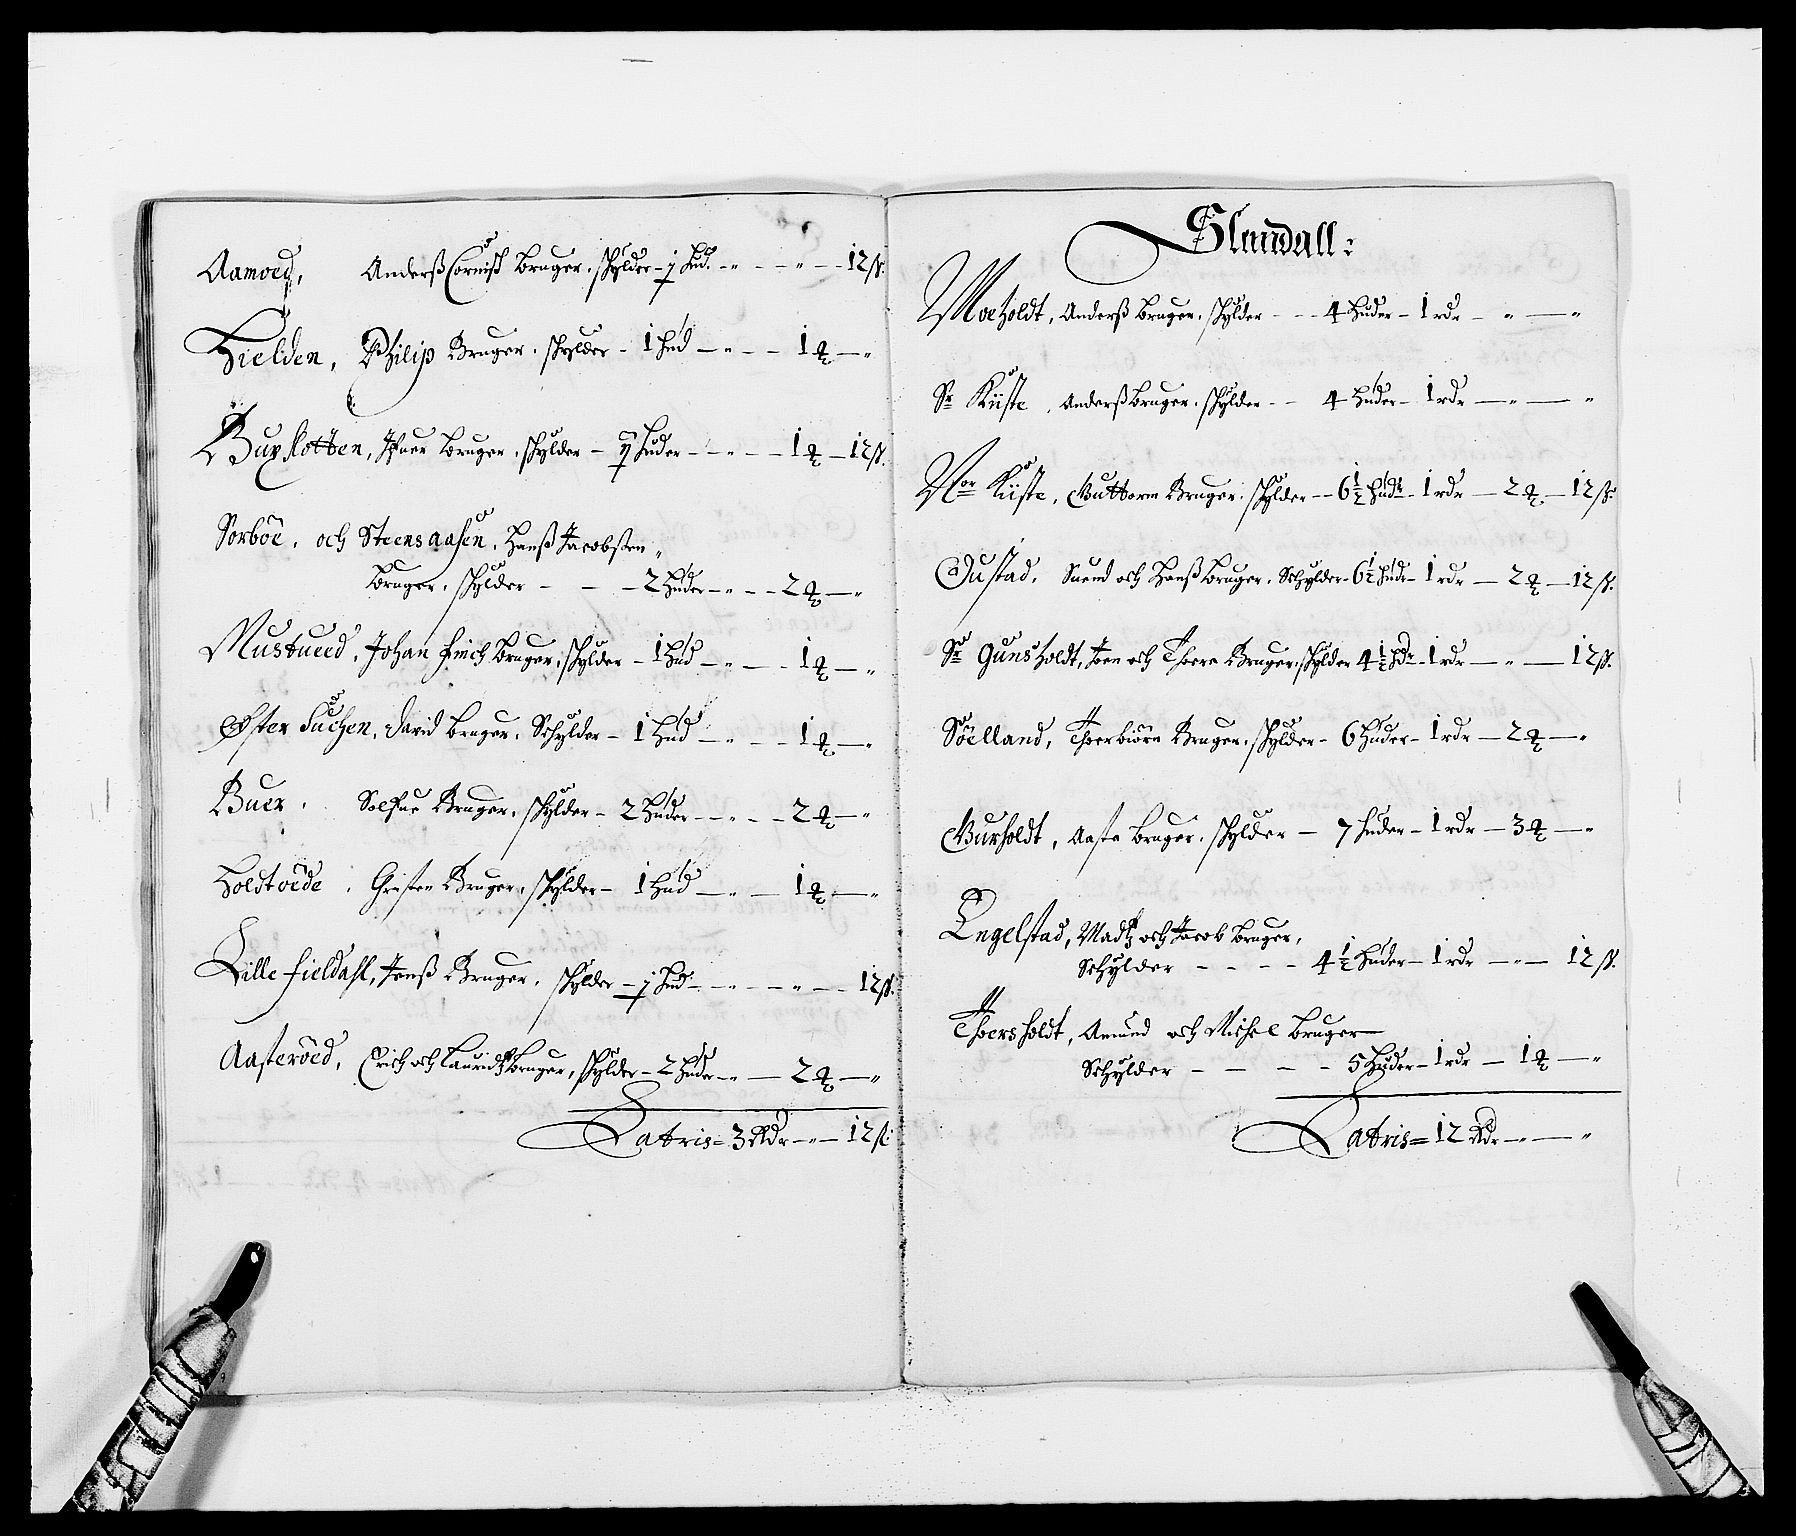 Aamoed, Anderß Cornisk bruger, skylder - j hud. - " - - " - - 12 ß.
Hielden, Philip Bruger, skylder - 1 hud - " - - 1 q - "
Buxkotten, Ifuer bruger, skylder - hudr - " - - 1 q - 12 ß.
Sorböe, och Steensaasen, Hanß Jacobsen
bruger, skylder - - - 2 huder - " - - 2 q - "
Mustueed, Johan finch bruger, skylder - 1 hud - " - - 1 q - "
Øster Suchen, david bruger, Schylder - 1 hud - " - - 1 q - "
Buer, Solfue Bruger, skylder - 2 huder - " - - 2 q - "
Holdtvede, Gresten Bruger, skylder - 1 hud - " - 1 q - "
Lille fieldahl, Jenß Bruger, skylder - j hud - " - - " - 12 ß.
Aasteröed, Erich och Lauridtz bruger, skylder - 2 hudr - " - 2 q - "
Latris = 3 Rdr - " - 12 ß:
Slimdall:
Moeholdt, Anderß bruger, skylder - - 4 huder - 1 rdr - " - "
Sr Kiiste, Anderß bruger, skylder - - 4 huder - 1 rdr - " - "
Nor Kiiste, Guttorm Bruger, skylder - - 6 1/2 hudr - 1 rdr - 2 q - 12 ß:
Oustad, Suend och Hanß bruger, Schylder - 6 1/2 hudr - 1 rdr - 2 q - 12 ß.
Sr Gunsholdt, Joen och Thore Bruger, skylder 4 1/2 hdr - 1 rdr - " - 12 ß.
Söelland, Thoerbiörn Bruger, skylder - 6 huder - 1 rdr - 2 q - "
Burholdt, Aasta bruger, skylder - 7 huder - 1 rdr - 3 q - "
Engelstad, Madtz och Jacob bruger,
Schylder - - - - 4 1/2 huder - 1 rdr - " - 12 ß.
Thoersholdt, Amund och Michel bruger
Schylder - - - - 5 huder - 1 rdr - 1 q - "
Latris = 12 Rdr - " - "